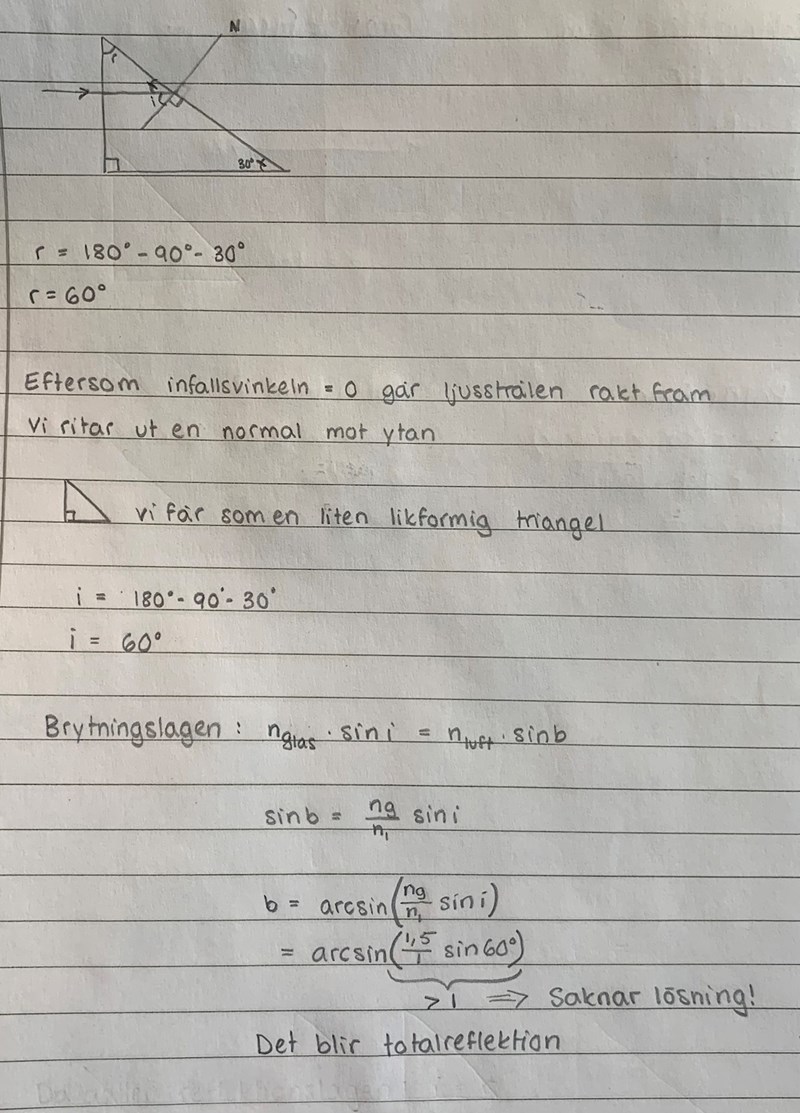 N
r
i
30°
r = 180° - 90° - 30°
r = 60°
Eftersom infallsvinkeln = 0 går ljusstrålen rakt fram
Vi ritar ut en normal mot ytan
vi får som en liten likformig triangel
i = 180° - 90° - 30°
i = 60°
Brytningslagen : n_glas · sin i = n_luft · sin b
sin b = ng/n₁ sin i
b = arcsin(ng/n₁ sin i)
= arcsin(1,5/1 sin 60°)
> 1 ⇒ Saknar lösning!
Det blir totalreflektion